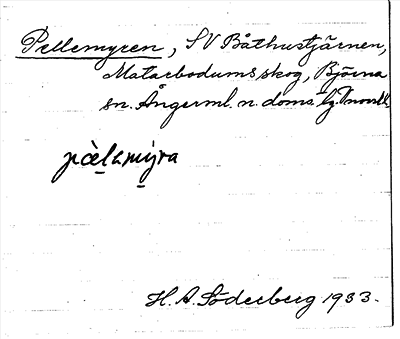 Pellemyren, SV Båthustjärnen,
Matarbodums skog, Björna
sn. Ångerml. n. doms.
pὲlamýra
H. A. Söderberg 1933.